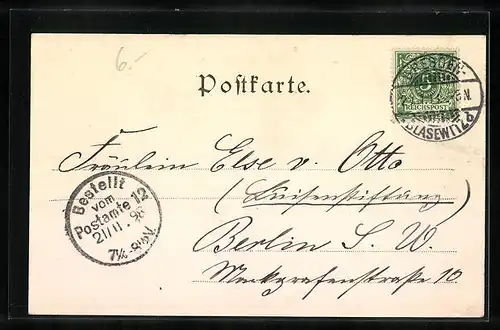 6.-
Postkarte.
DRESDEN-
5
REICHSPOST
N.
BLASEWITZ b
Fräulein Else v. Otto
(Luisenstiftung)
Berlin S. W.
Markgrafenstraße 10.
Bestellt
vom
Postamte 12
21/11. 98
7½-8½V.